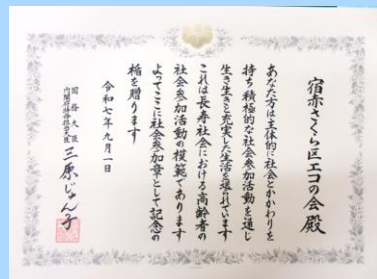 宿赤さくら区エコの会殿
あなた方は主体的に社会とかかわりを
持ち積極的な社会参加活動を通じ
生き生きと充実した生活を送れています
これは長寿社会における高齢者の
社会参加活動の模範であります
よってここに社会参加章として記念の
楯を贈ります
令和七年九月一日
国務大臣
内閣府特命担当大臣
三原じゅん子